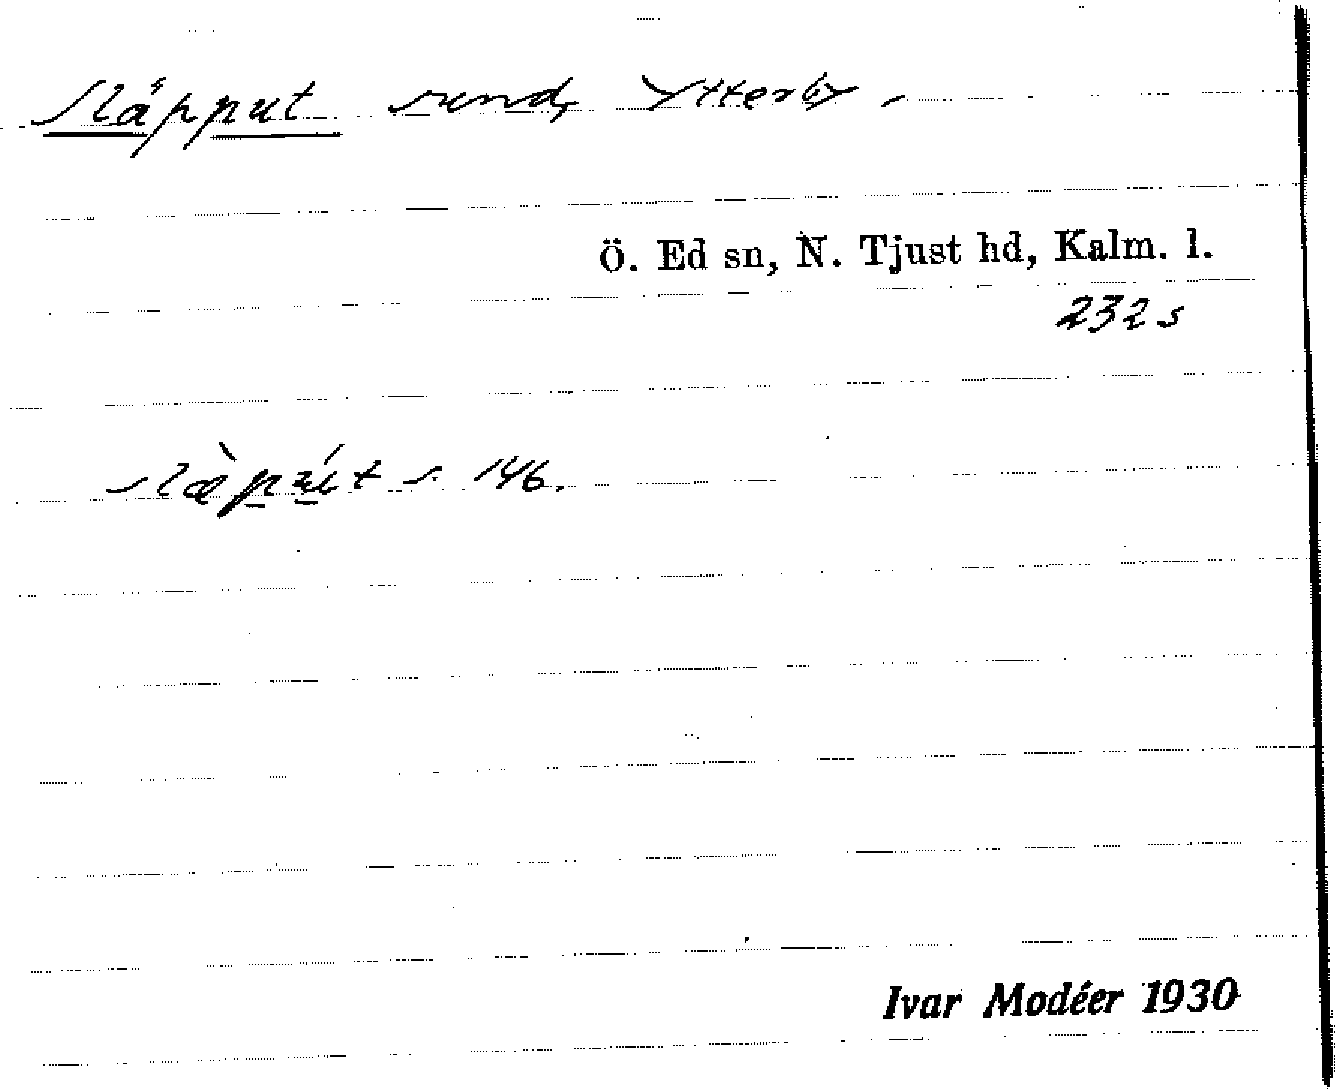 Släpput sund, Ytterby.
Ö. Ed sn, N. Tjust hd, Kalm. l.
232 s
s. 146.
Ivar Modéer 1930